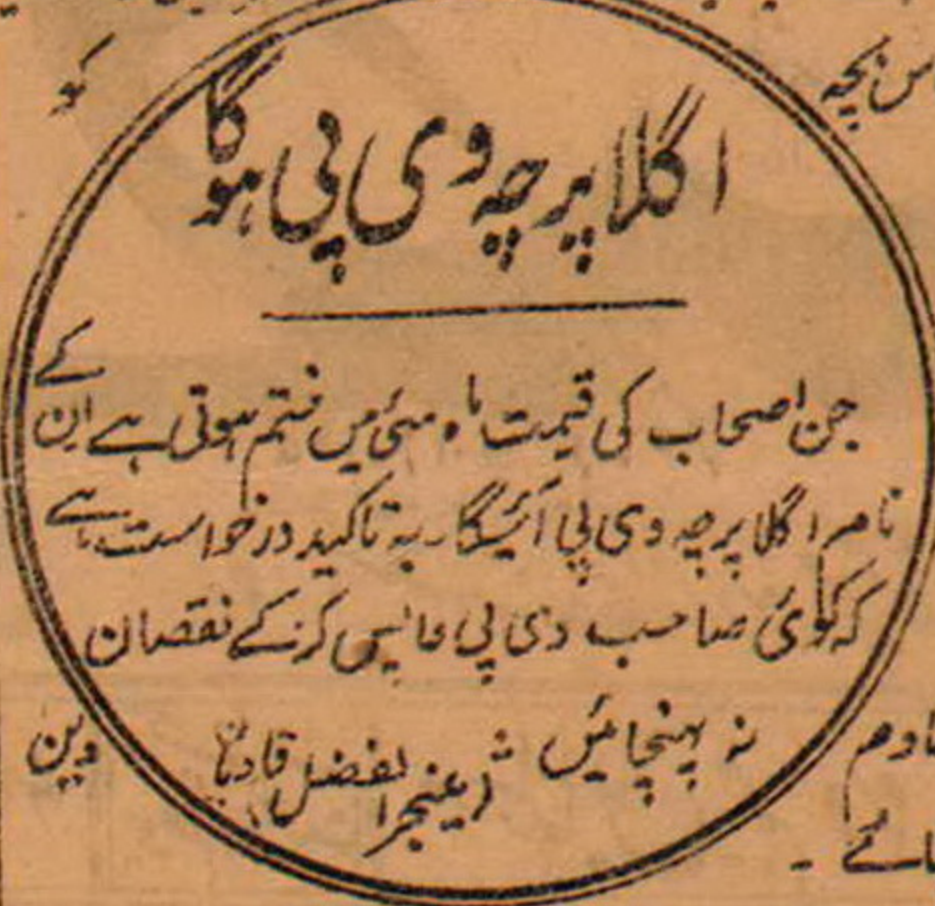 اگلا پرچہ وی پی ہوگا
جن اصحاب کی قیمت ماہ مئی میں ختم ہوتی ہے ان کے
نام اگلا پرچہ وی پی آئیگا۔ بہ تاکید درخواست ہے
کہ کوئی صاحب وی پی واپس کرنے کے نقصان
نہ پہنچائیں (مینجر الفضل قادیان)
کو
بچہ
دین